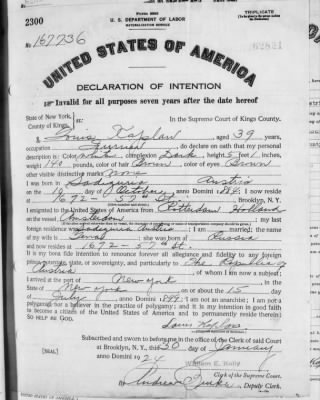 2300
Form 2203
U. S. DEPARTMENT OF LABOR
NATURALIZATION SERVICE
TRIPLICATE
No. 167736
62821
UNITED STATES OF AMERICA
DECLARATION OF INTENTION
Invalid for all purposes seven years after the date hereof
State of New York,
County of Kings, ss:
In the Supreme Court of Kings County.
I, Louis Kaplan, aged 39 years,
occupation Furrier, do declare on oath that my personal
description is: Color white, complexion Dark, height 5 feet inches,
weight 140 pounds, color of hair Brown, color of eyes Brown
other visible distinctive marks None
I was born in Sadigura Austria
on the day of October, anno Domini 1884; I now reside
at 1672 - 57th St Brooklyn, N. Y.
I emigrated to the United States of America from Rotterdam Holland
on the vessel Amsterdam; my last
foreign residence was Sadigura Austria; I am married; the name
of my wife is; she was born at Russia
and now resides at 1672 - 57th St.
It is my bona fide intention to renounce forever all allegiance and fidelity to any foreign
prince, potentate, state, or sovereignty, and particularly to The Republic of
Austria of whom I am now a subject;
I arrived at the port of New York, in the
State of New York, on or about the 15 day
of July, anno Domini 1899; I am not an anarchist; I am not a
polygamist nor a believer in the practice of polygamy; and it is my intention in good faith
to become a citizen of the United States of America and to permanently reside therein:
SO HELP ME GOD.
Louis Kaplan
Subscribed and sworn to before me in the office of the Clerk of said Court
at Brooklyn, N. Y., this 30 day of January
[SEAL] anno Domini 1924
William E. Kelly
Clerk of the Supreme Court.
By Andrew, Deputy Clerk.